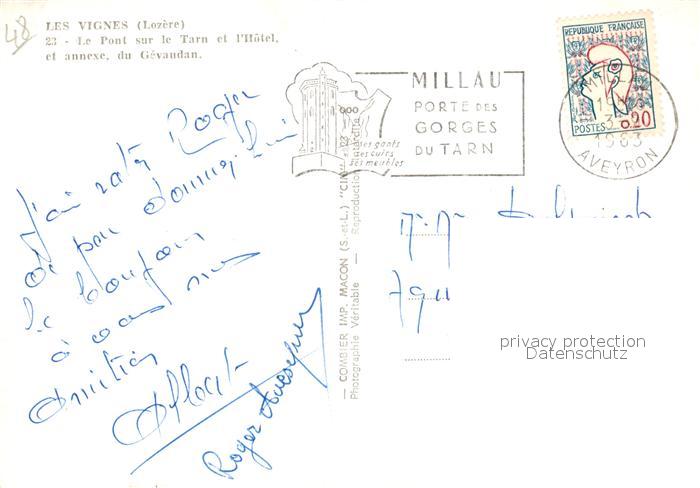 48
LES VIGNES (Lozère)
23 - Le Pont sur le Tarn et l'Hôtel,
et annexe, du Gévaudan.
J'ai raté Roger
de peu donnez lui
le bonjour
à vous mes
amitiés
Albert
Roger
— COMBIER IMP. MACON (S.-et-L.) "CIM" — 23 —
Photographie Véritable — Reproduction interdite
MILLAU
PORTE DES
GORGES
DU TARN
ses gants
ses cuirs
ses meubles
REPUBLIQUE FRANÇAISE
POSTES 0,20
MILLAU
1963
AVEYRON
privacy protection
Datenschutz